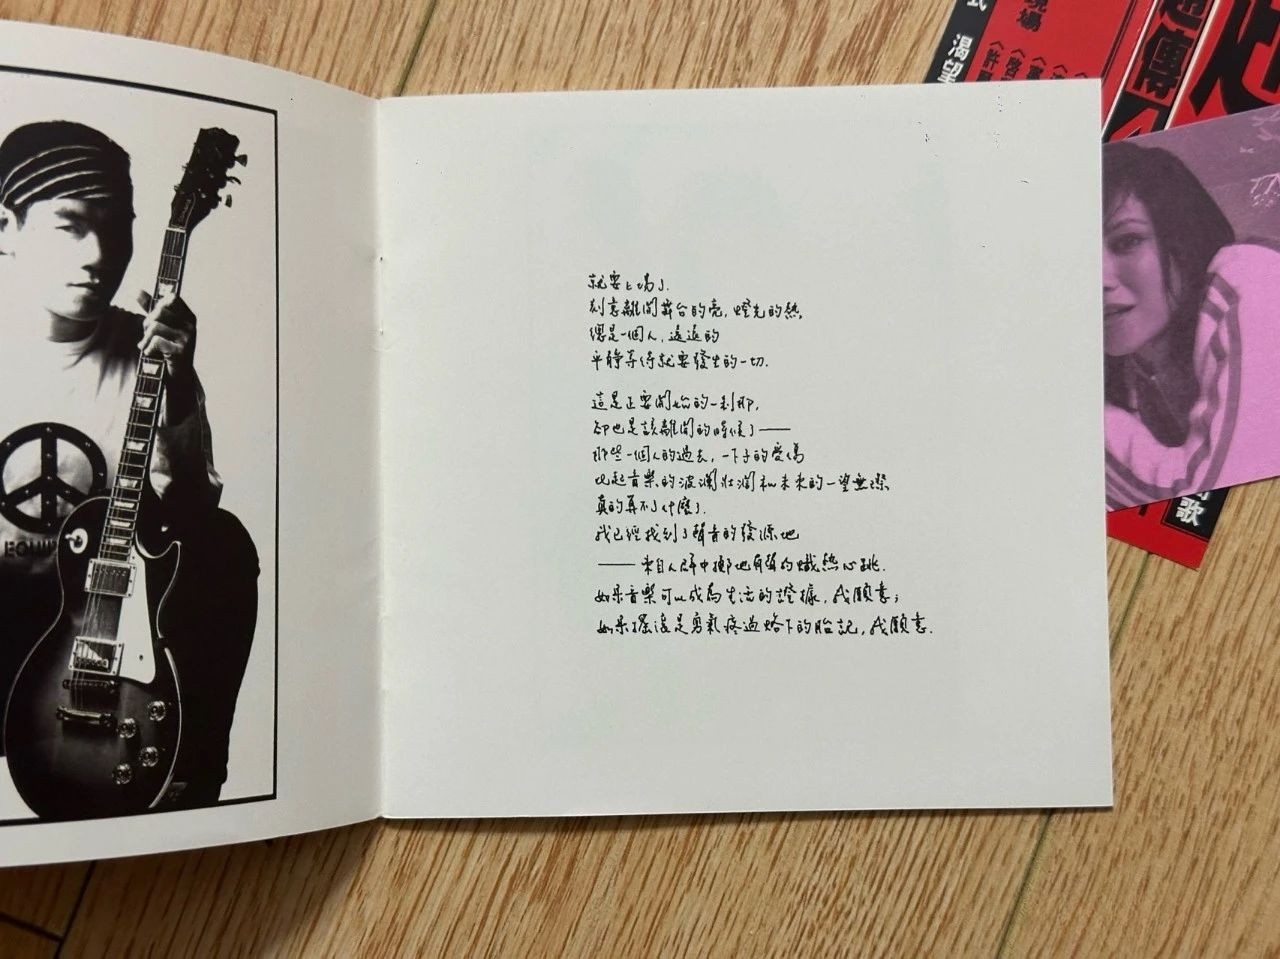 就要上場了.
刻意離開舞台的亮，燈光的熱，
總是一個人，遠遠的
平靜等待就要發生的一切.
這是正要開始的一剎那，
卻也是該離開的時候了——
那些一個人的過去，一下子的愛傷
比起音樂的波瀾壯濶和未來的一望無際
真的算不了什麼了.
我已經找到了聲音的發源地
——來自人群中擲地有聲的熾熱心跳.
如果音樂可以成為生活的證據，我願意；
如果搖滾是勇氣疼過烙下的胎記，我願意.
渴望
趙傳
歌